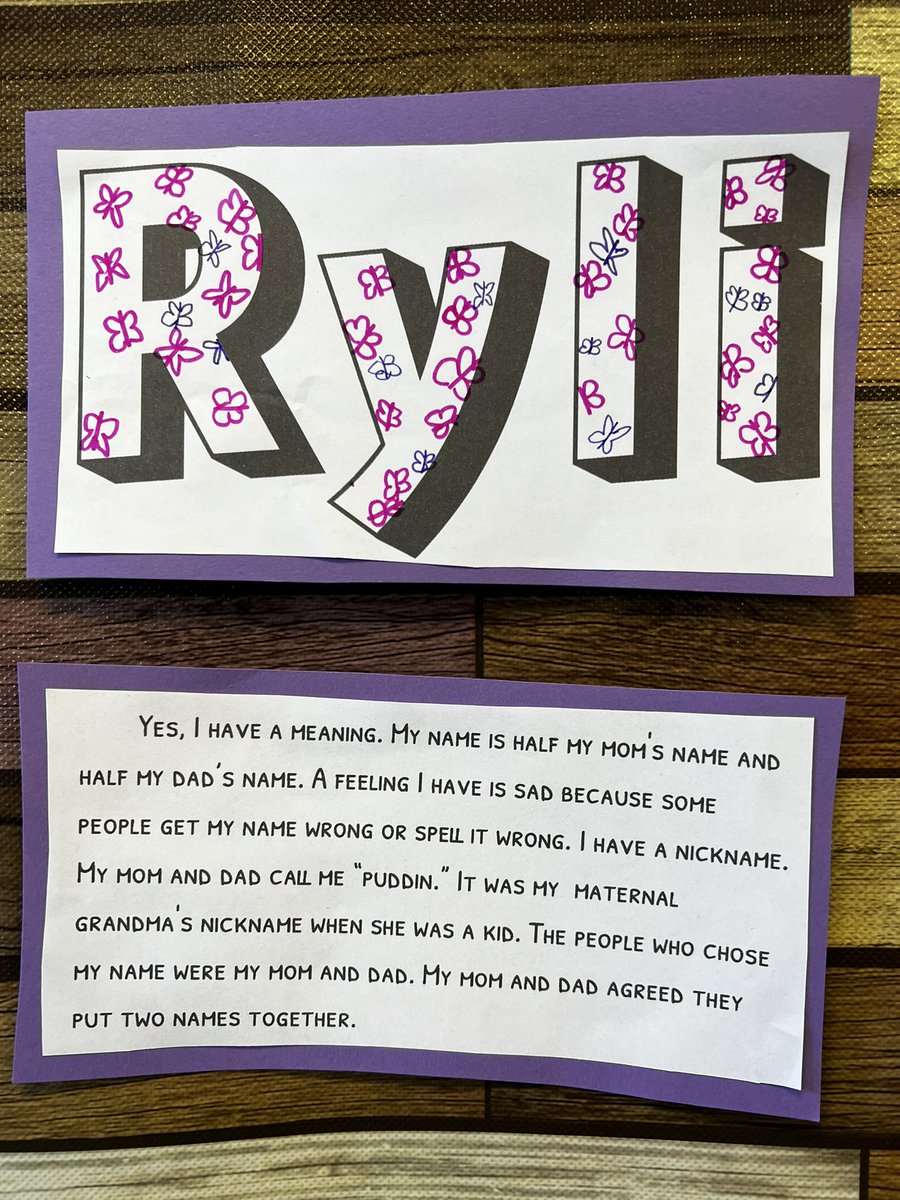 Ryli
Yes, I have a meaning. My name is half my mom's name and
half my dad's name. A feeling I have is sad because some
people get my name wrong or spell it wrong. I have a nickname.
My mom and dad call me "puddin." It was my maternal
grandma's nickname when she was a kid. The people who chose
my name were my mom and dad. My mom and dad agreed they
put two names together.